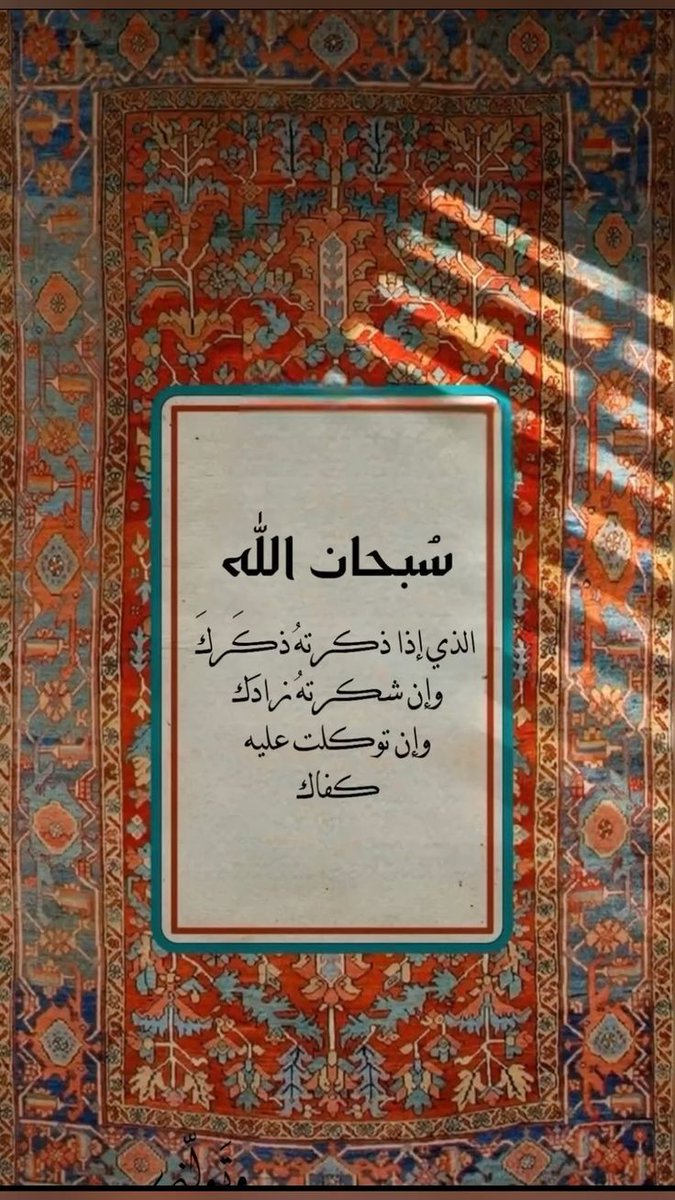 سُبحان الله
الذي إذا ذكرتهُ ذكَركَ
وإن شكرتهُ زادَك
وإن توكلت عليه
كفاك